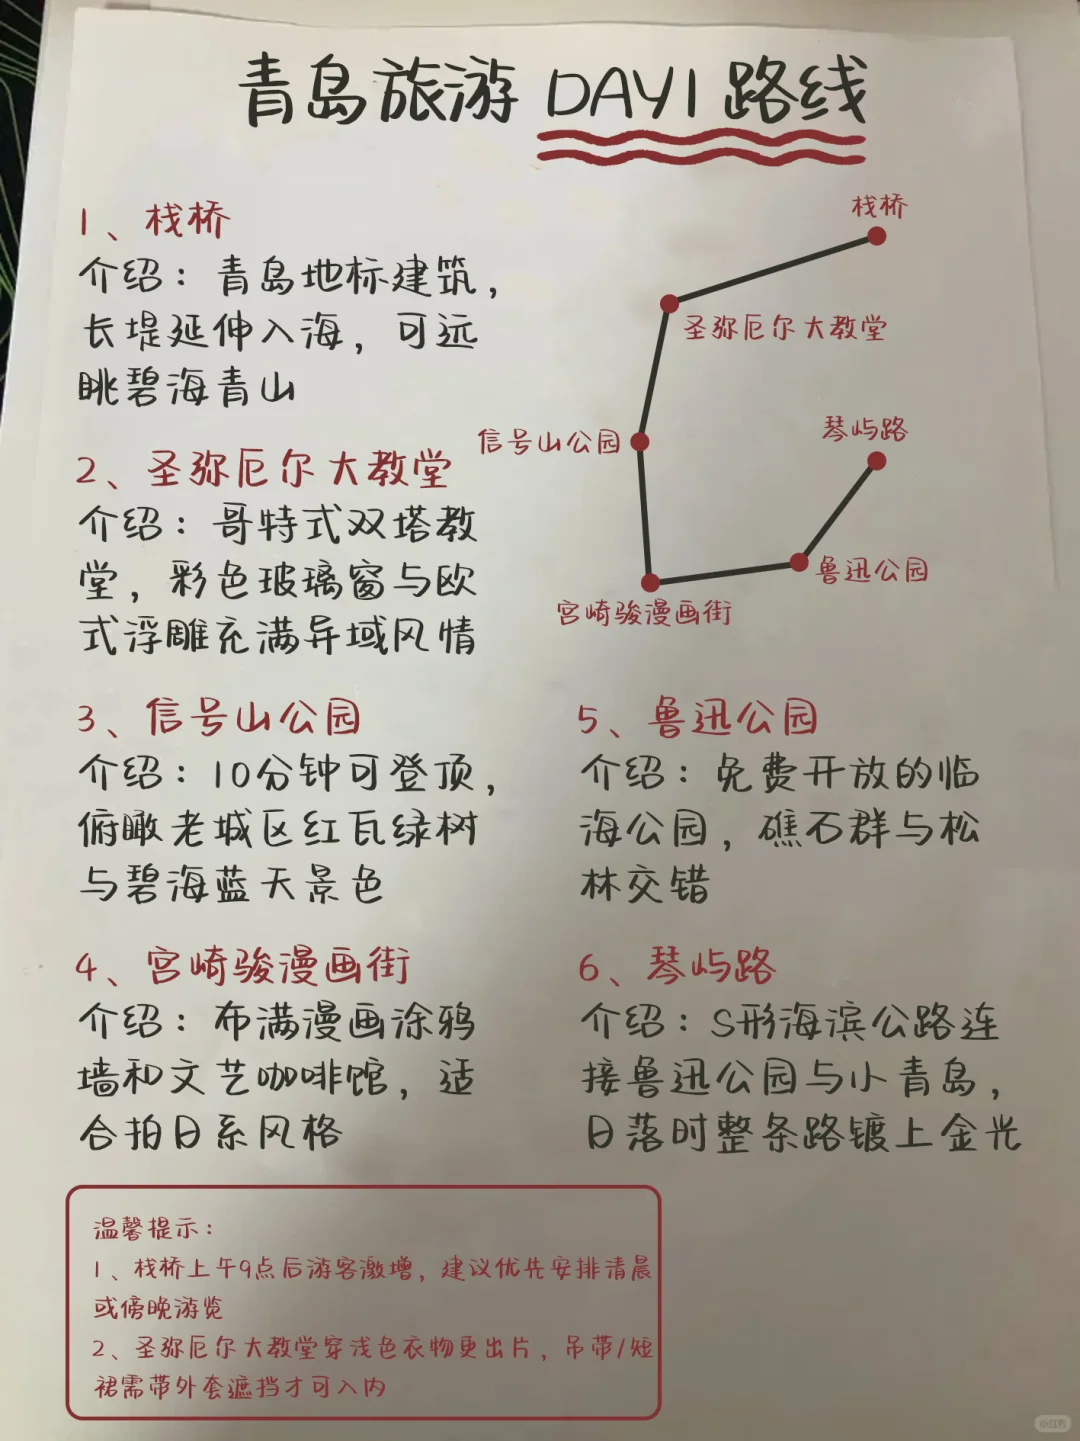 青岛旅游 DAY1 路线
栈桥
圣弥厄尔大教堂
信号山公园
琴屿路
鲁迅公园
宫崎骏漫画街
1、栈桥
介绍：青岛地标建筑，
长堤延伸入海，可远
眺碧海青山
2、圣弥厄尔大教堂
介绍：哥特式双塔教
堂，彩色玻璃窗与欧
式浮雕充满异域风情
3、信号山公园
介绍：10分钟可登顶，
俯瞰老城区红瓦绿树
与碧海蓝天景色
4、宫崎骏漫画街
介绍：布满漫画涂鸦
墙和文艺咖啡馆，适
合拍日系风格
5、鲁迅公园
介绍：免费开放的临
海公园，礁石群与松
林交错
6、琴屿路
介绍：S形海滨公路连
接鲁迅公园与小青岛，
日落时整条路镀上金光
温馨提示：
1、栈桥上午9点后游客激增，建议优先安排清晨
或傍晚游览
2、圣弥厄尔大教堂穿浅色衣物更出片，吊带/短
裙需带外套遮挡才可入内
小红书